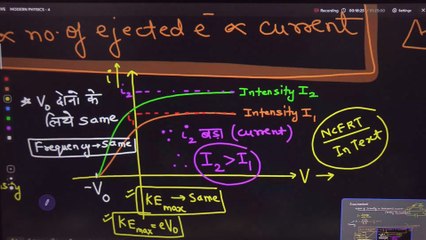 MODERN PHYSICS - 4
Recording
∝ no. of ejected e⁻ ∝ current
i
i₂
i₁
Intensity I₂
Intensity I₁
* V₀ दोनों के
लिये same
Frequency → same
∵ i₂ बड़ा (current)
∴ I₂ > I₁
NCERT
InText
-V₀
V
KEmax → Same
KEmax = eV₀